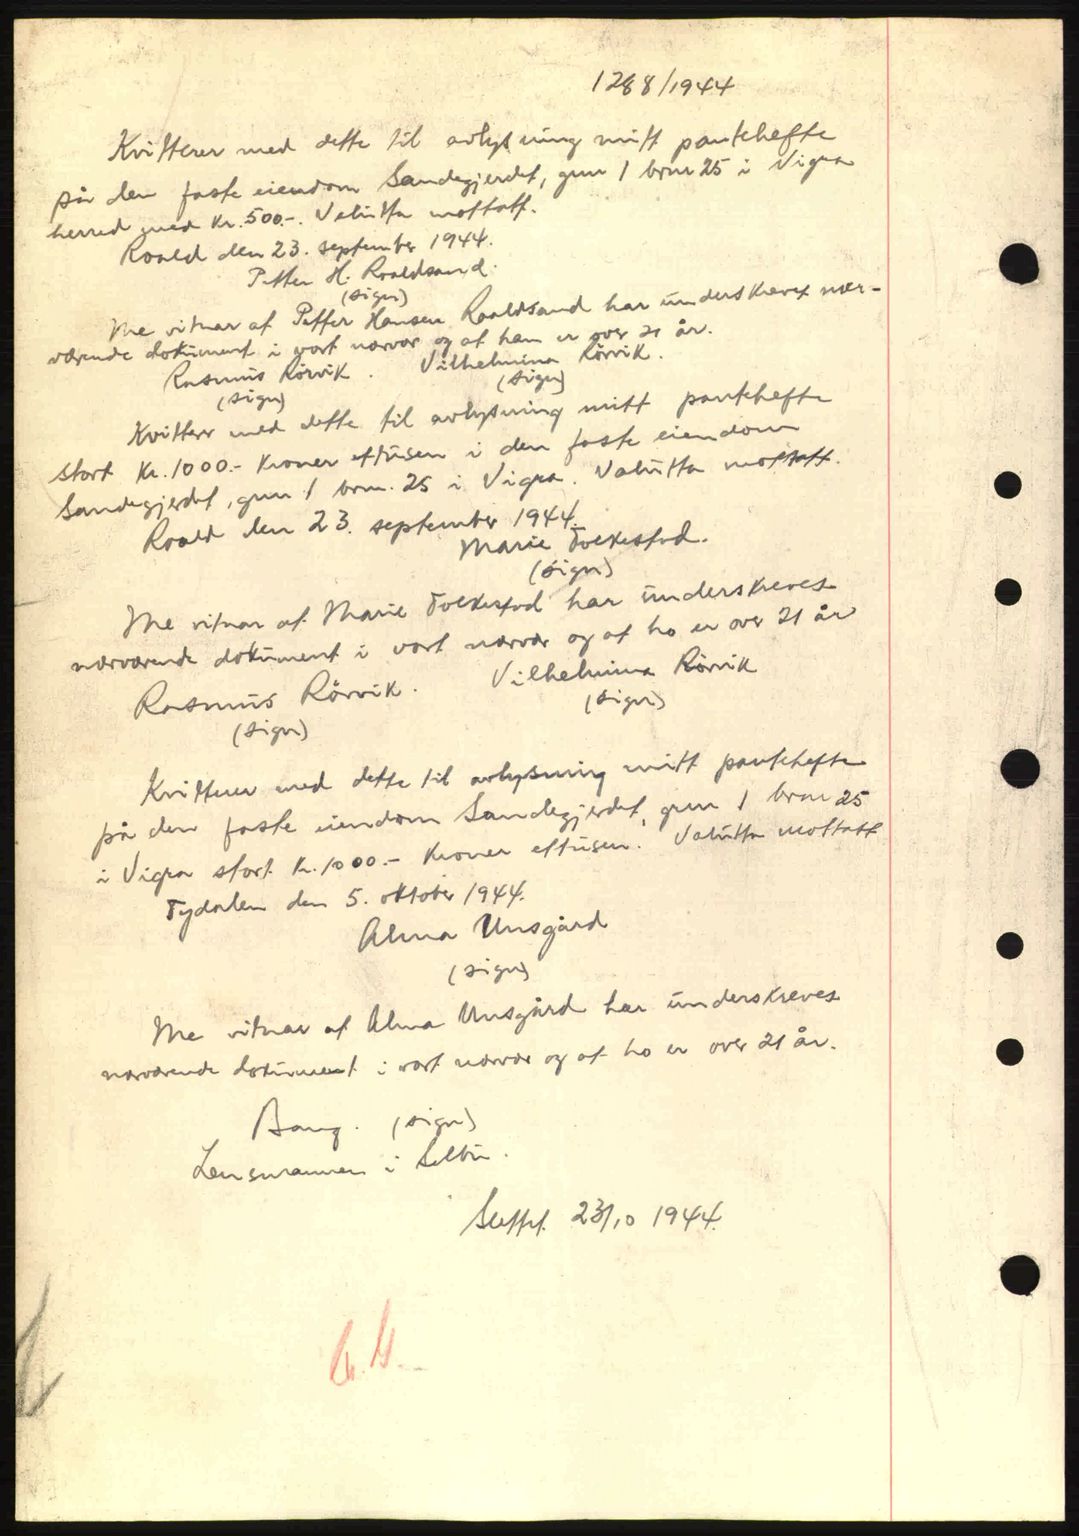 1288/1944
Kvitterer med dette til avlysning mitt pantehefte
på den faste eiendom Sandegjerdet, gnr 1 brnr 25 i Vigra
herred med Kr. 500.-. Valutta mottatt.
Roald den 23. september 1944.
Petter H. Roaldsand.
(sign)
Me vitnar at Petter Hansen Roaldsand har underskrevet nær-
værende dokument i vort nærvær og at han er over 21 år.
Rasmus Rörvik. Vilhelmina Rörvik.
(sign) (sign)
Kvitterer med dette til avlysning mitt pantehefte
stort Kr. 1000.- Kroner ettusen i den faste eiendom
Sandegjerdet, gnr 1 brnr. 25 i Vigra. Valutta mottatt.
Roald den 23. september 1944.
Marie Folkestad.
(sign)
Me vitnar at Marie Folkestad har underskrevet
nærværende dokument i vort nærvær og at ho er over 21 år
Rasmus Rörvik. Vilhelmina Rörvik
(sign) (sign)
Kvitterer med dette til avlysning mitt pantehefte
på den faste eiendom Sandegjerdet, gnr 1 brnr 25
i Vigra stort Kr. 1000.- Kroner ettusen. Valutta mottatt
Tydalen den 5. oktober 1944.
Alma Unsgård
(sign)
Me vitnar at Alma Unsgård har underskrevet
nærværende dokument i vort nærvær og at ho er over 21 år.
Bang. (sign)
Lensmannen i Selbu.
Slettet. 23/10 1944.